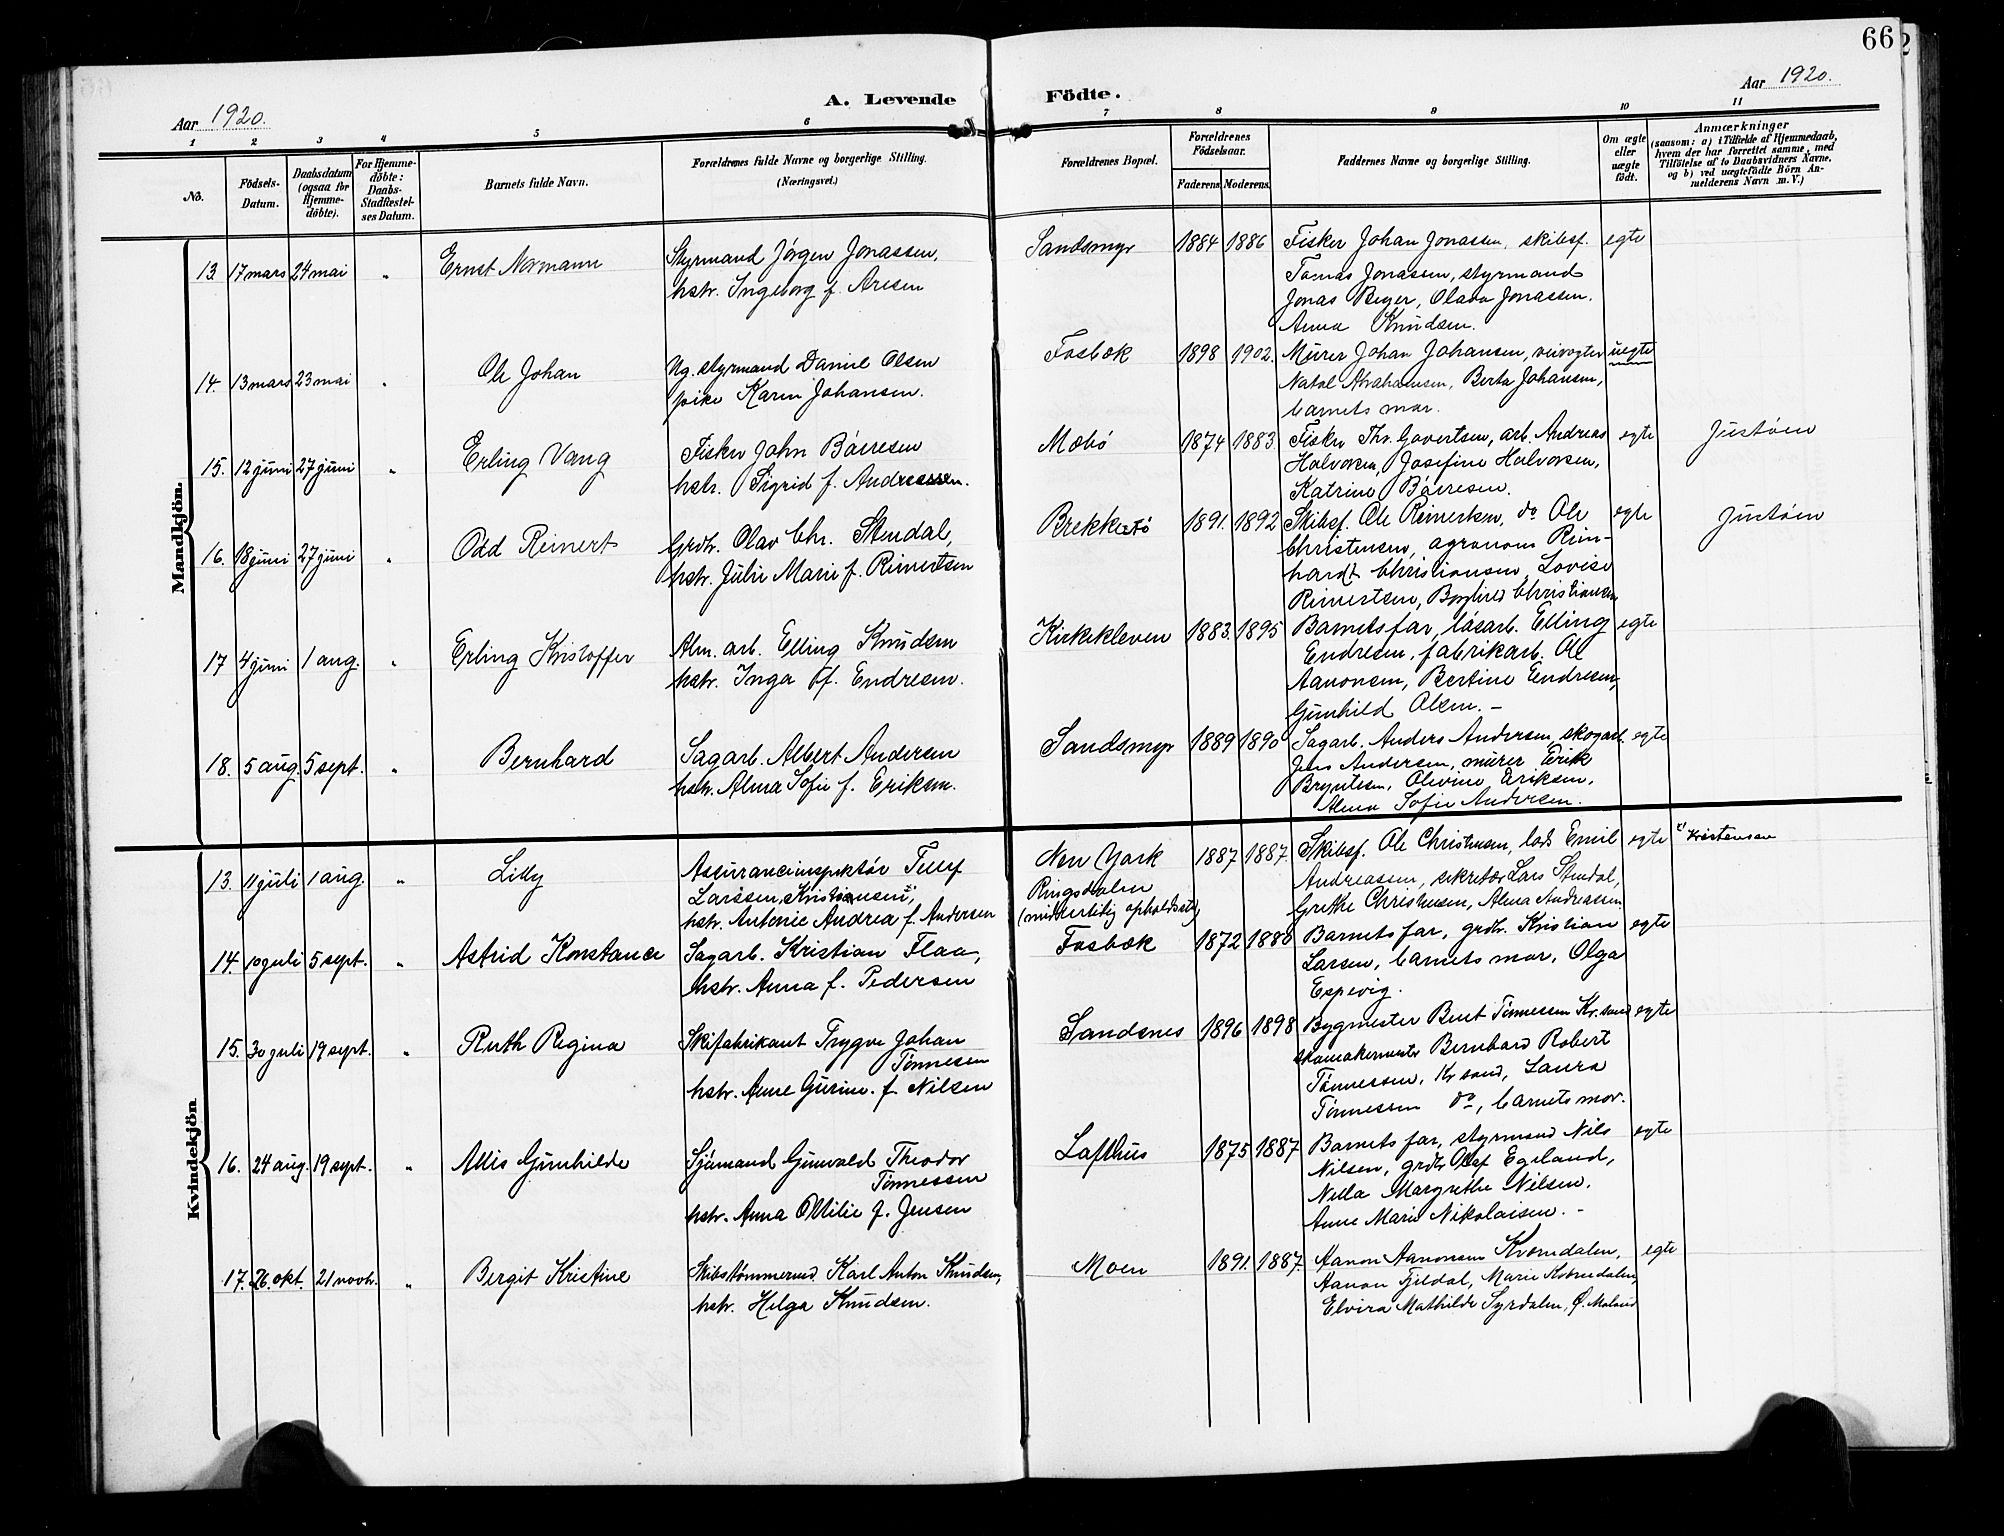 66
Aar 1920.
A. Levende Födte.
Aar 1920.
1 2 3 4 5 6 7 8 9 10 11
No.
Födsels-Datum.
Daabsdatum (ogsaa for Hjemme-döbte).
For Hjemme-döbte: Daabs-Stadfæstel-ses Datum.
Barnets fulde Navn.
Forældrenes fulde Navne og borgerlige Stilling. (Næringsvei.)
Forældrenes Bopæl.
Forældrenes Födselsaar.
Faderens. Moderens.
Faddernes Navne og borgerlige Stilling.
Om ægte eller uægte født.
Anmærkninger
(saasom: a) i Tilfælde af Hjemmedaab,
hvem der har forrettet samme, med
Tilföielse af to Daabsvidners Navne,
og b) ved uægtefödte Börn An-
melderens Navn m. V.)
Mandkjön.
13. 17 mars 24 mai " Ernst Normann
Styrmand Jörgen Jonassen,
hstr. Ingeborg f. Aresen
Sandsmyr 1884 1886
Fisker Johan Jonassen, skibsf.
Tomas Jonassen, styrmand
Jonas Beyer, Olava Jonassen.
Anna Knudsen.
egte
14. 13 mars 23 mai " Ole Johan
Ug. styrmand Daniel Olsen
pike Karin Johansen.
Fosbæk 1898 1902.
Murer Johan Johansen, veivogter
Natal Abrahamsen, Berta Johansen,
barnets mor.
uegte
15. 12 juni 27 juni " Erling Vang
Fisker John Börresen
hstr. Sigrid f. Andreassen.
Mæbö 1874 1883.
Fisker Thv. Govertsen, arb. Andreas
Halvorsen, Josefine Halvorsen,
Katrine Börresen.
egte Justöen
16. 18 juni 27 juni " Odd Reinert
Grdr. Olav Chr. Stendal,
hstr. Julie Marie f. Reinertsen
Brekkestö 1891. 1892
Skibsf. Ole Reinertsen, do Ole
Christensen, agronom Rein-
hardt Christiansen, Lovise
Reinertsen, Borghild Christiansen
egte Justöen
17 4 juni 1 aug. " Erling Kristoffer
Alm. arb. Elling Knudsen
hstr. Inga f. Endresen.
Kirkekleven 1883. 1895
Barnets far, lösarb. Elling
Endresen, fabrikarb. Ole
Aanonsen, Bertine Endresen,
Gunhild Olsen. -
egte
18. 5 aug. 5 sept. " Bernhard
Sagarb. Albert Andersen
hstr. Alma Sofie f. Eriksen.
Sandsmyr 1889 1890
Sagarb. Anders Andersen, skogarb.
Jens Andersen, murer Erik
Bryntesen, Olivine Eriksen,
Alma Sofie Andersen.
egte
Kvindekjön.
13. 11 juli 1 aug. " Lilly
Assuranceinspektör Tellef
Larssen, Kristiansen 1),
hstr. Antonie Andrea f. Andersen
New York
Ringsdalen
(midlertidig opholdssted)
1887 1887.
Skibsf. Ole Christensen, lods Emil
Andreassen, sekretær Lars Stendal,
Grethe Christensen, Alma Andreassen
egte 1) Kristensen
14. 10 juli 5 sept. " Astrid Konstance
Sagarb. Kristian Flaa,
hstr. Anna f. Pedersen
Fosbæk 1872 1880
Barnets far, grdr. Kristian
Larsen, barnets mor, Olga
Espevig.
egte
15. 30 juli 19 sept. " Ruth Regina
Skifabrikant Trygve Johan
Tönnesen
hstr. Anne Gurine f. Nilsen
Sandsnes 1896 1898
Bygmester Bent Tönnessen Kr.sand
skomakermester Bernhard Robert
Tönnessen, Kr sand, Laura
Tönnessen do, barnets mor.
egte
16. 24 aug. 19 sept. " Allis Gunhilde
Sjömand Gunvald Theodor
Tönnessen
hstr. Anna Ottilie f. Jensen
Lafthus 1875 1887
Barnets far, styrmand Nils
Nilsen, grdr Olaf Egeland,
Nella Margrethe Nilsen.
Anne Marie Nikolaisen. -
egte
17. 26. okt. 21 novbr. " Bergit Kristine
Skibstömmermd. Karl Anton Knudsen,
hstr. Helga Knudsen.
Moen 1891. 1887.
Aanon Aanonsen Kværndalen,
Aanon Tjeldal, Marie Kværndalen
Elvira Mathilde Syrdalen, Ø. Moland
egte